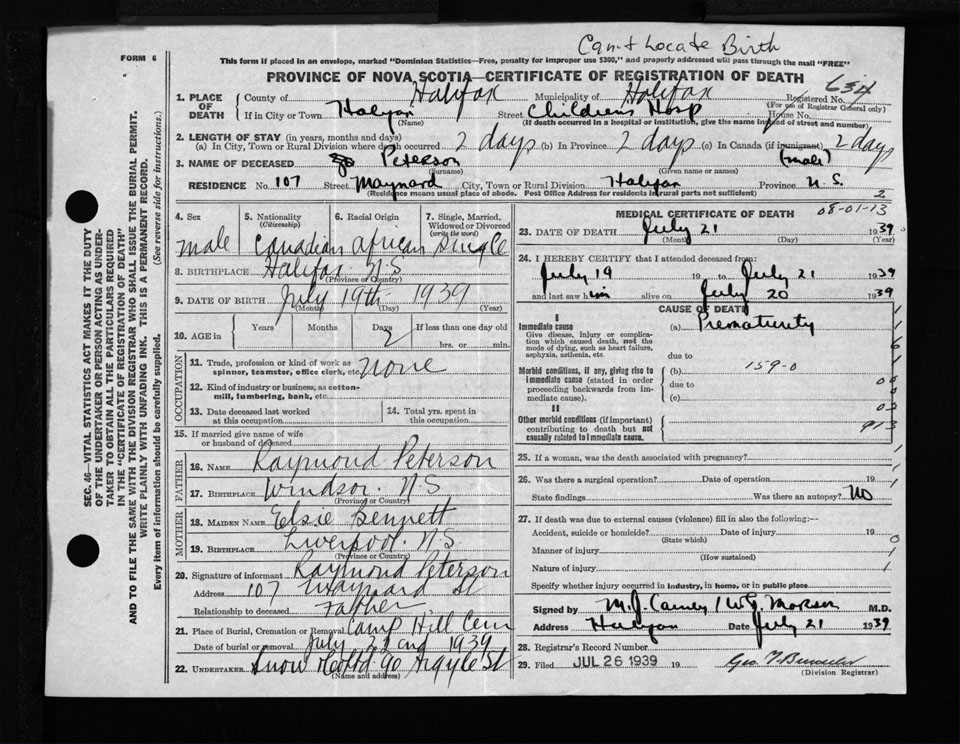 Can't Locate Birth
FORM 6
This form if placed in an envelope, marked "Dominion Statistics—Free, penalty for improper use $300," and properly addressed will pass through the mail "FREE"
PROVINCE OF NOVA SCOTIA—CERTIFICATE OF REGISTRATION OF DEATH
634
1. PLACE OF DEATH County of Halifax Municipality of Halifax Registered No.
(For use of Registrar General only)
If in City or Town Halifax (Name) Street Childrens Hosp House No.
(If death occurred in a hospital or institution, give the name instead of street and number)
2. LENGTH OF STAY (in years, months and days)
(a) In City, Town or Rural Division where death occurred 2 days (b) In Province 2 days (c) In Canada (if immigrant) 2 days
3. NAME OF DECEASED Peterson (male)
(Surname) (Given name or names)
RESIDENCE No. 107 Street Maynard City, Town or Rural Division Halifax Province N. S.
(Residence means usual place of abode. Post Office Address for residents in rural parts not sufficient)
2
SEC. 46—VITAL STATISTICS ACT MAKES IT THE DUTY
OF THE UNDERTAKER OR PERSON ACTING AS UNDER-
TAKER TO OBTAIN ALL THE PARTICULARS REQUIRED
IN THE "CERTIFICATE OF REGISTRATION OF DEATH"
AND TO FILE THE SAME WITH THE DIVISION REGISTRAR WHO SHALL ISSUE THE BURIAL PERMIT.
WRITE PLAINLY WITH UNFADING INK. THIS IS A PERMANENT RECORD.
Every item of information should be carefully supplied. (See reverse side for instructions.)
4. Sex 5. Nationality (Citizenship) 6. Racial Origin 7. Single, Married, Widowed or Divorced (write the word)
male Canadian African Single
8. BIRTHPLACE Halifax N.S
(Province or Country)
9. DATE OF BIRTH July 19th 1939
(Month) (Day) (Year)
10. AGE in Years Months Days 2 If less than one day old
hrs. or min.
OCCUPATION
11. Trade, profession or kind of work as
spinner, teamster, office clerk, etc. None
12. Kind of industry or business, as cotton-
mill, lumbering, bank, etc.
13. Date deceased last worked
at this occupation
14. Total yrs. spent in
this occupation
15. If married give name of wife
or husband of deceased
FATHER
16. NAME Raymond Peterson
17. BIRTHPLACE Windsor. N.S
(Province or Country)
MOTHER
18. MAIDEN NAME Elsie Bennett
19. BIRTHPLACE Liverpool. N.S
(Province or Country)
20. Signature of informant Raymond Peterson
Address 107 Maynard St
Relationship to deceased Father
21. Place of Burial, Cremation or Removal Camp Hill Cem
Date of burial or removal July 22nd 1939
22. UNDERTAKER Snow & Co Ltd 90 Argyle St
(Name and address)
MEDICAL CERTIFICATE OF DEATH
08-01-13
23. DATE OF DEATH July 21 1939
(Month) (Day) (Year)
24. I HEREBY CERTIFY that I attended deceased from:
July 19 19 to July 21 1939
and last saw him alive on July 20 1939
CAUSE OF DEATH
I
Immediate cause (a) Prematurity
Give disease, injury or complica-
tion which caused death, not the
mode of dying, such as heart failure,
asphyxia, asthenia, etc.
due to
Morbid conditions, if any, giving rise to
immediate cause (stated in order
proceeding backwards from im-
mediate cause).
(b) 159-0
due to
(c)
II
Other morbid conditions (if important)
contributing to death but not
causally related to immediate cause.
913
25. If a woman, was the death associated with pregnancy?
26. Was there a surgical operation? Date of operation 19
State findings Was there an autopsy? No
27. If death was due to external causes (violence) fill in also the following:—
Accident, suicide or homicide? Date of injury 19
(State which)
Manner of injury
(How sustained)
Nature of injury
Specify whether injury occurred in industry, in home, or in public place
Signed by M.D.
Address Halifax Date July 21 1939
28. Registrar's Record Number
29. Filed JUL 26 1939 19
(Division Registrar)